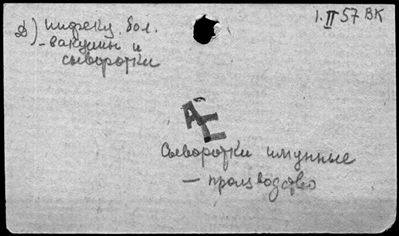 1.II 57 ВК
д) инфекц. бол.
- вакцины и
сыворотки
АЕ
Сыворотки имунные
— производство